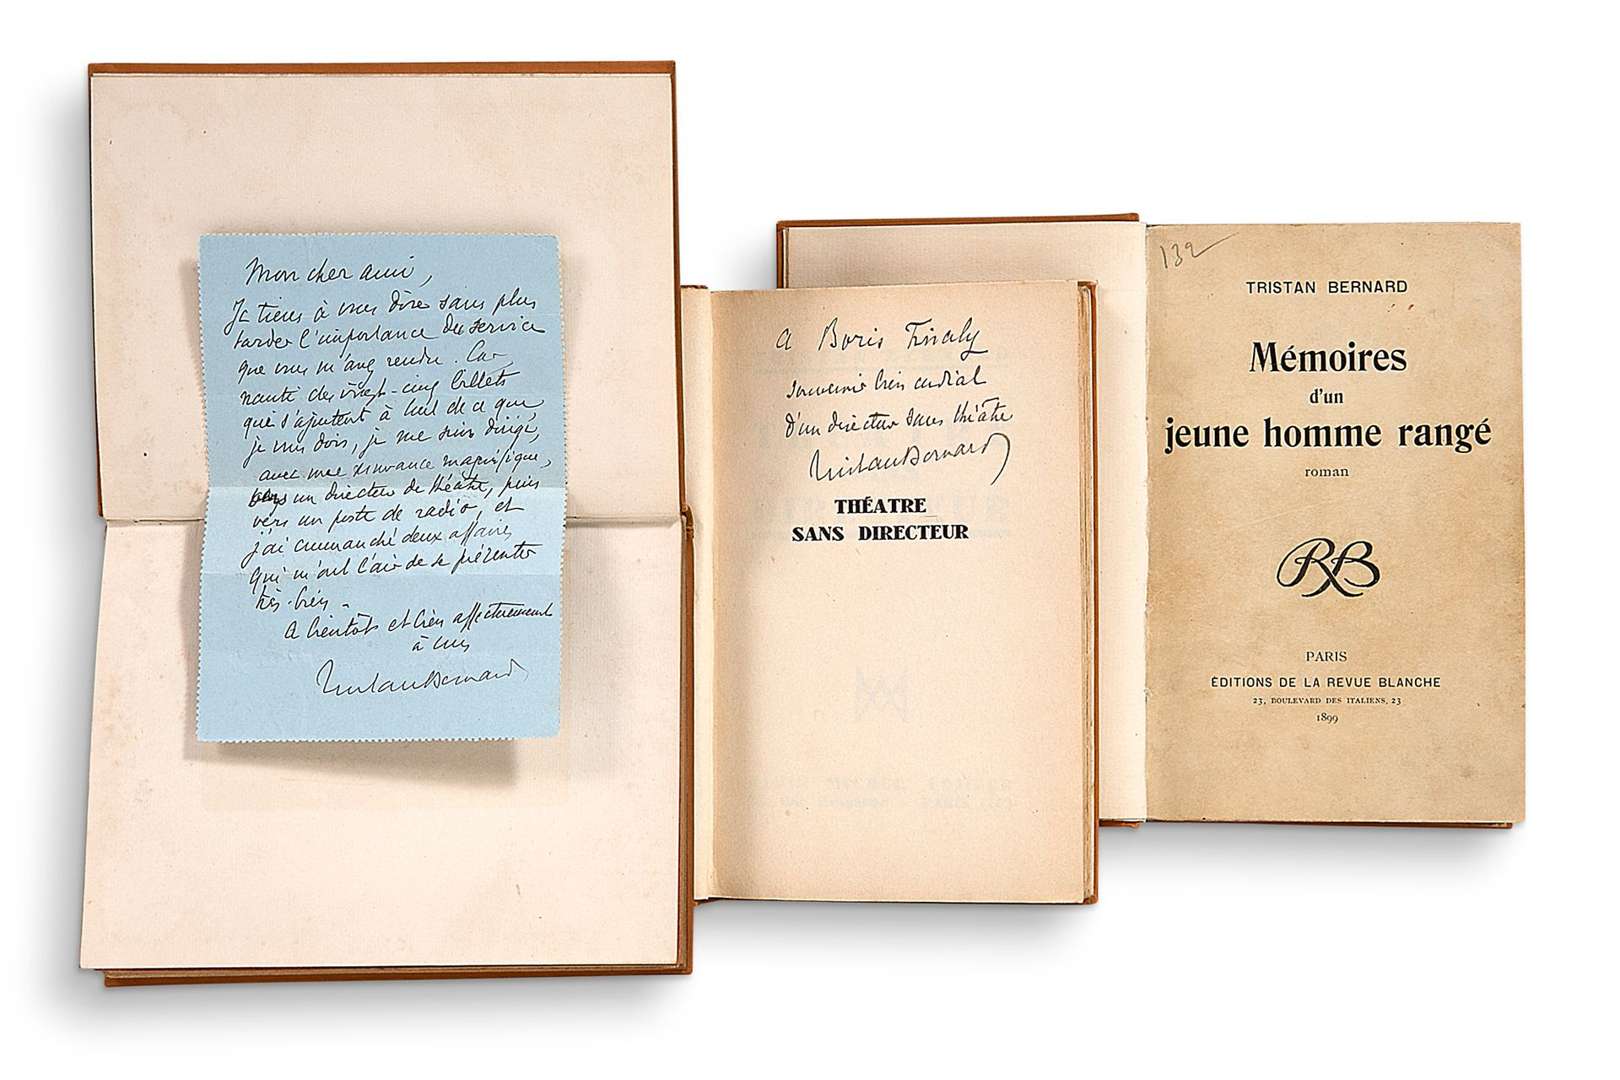 Mon cher ami,
Je tiens à vous dire sans plus
tarder l'importance du service
que vous m'avez rendu. Car,
nanti des vingt-cinq billets
qui s'ajoutent à tout ce que
je vous dois, je me suis dirigé,
avec une assurance magnifique,
vers un directeur de théâtre, puis
vers un poste de radio, et
j'ai commanché deux affaires
qui m'ont l'air de se présenter
très-bien.
A bientôt et bien affectueusement
à vous
Tristan Bernard
a Boris Finaly
souvenir bien cordial
d'un directeur sans théâtre
Tristan Bernard
THÉATRE
SANS DIRECTEUR
132
TRISTAN BERNARD
Mémoires
d'un
jeune homme rangé
roman
RB
PARIS
ÉDITIONS DE LA REVUE BLANCHE
23, BOULEVARD DES ITALIENS, 23
1899